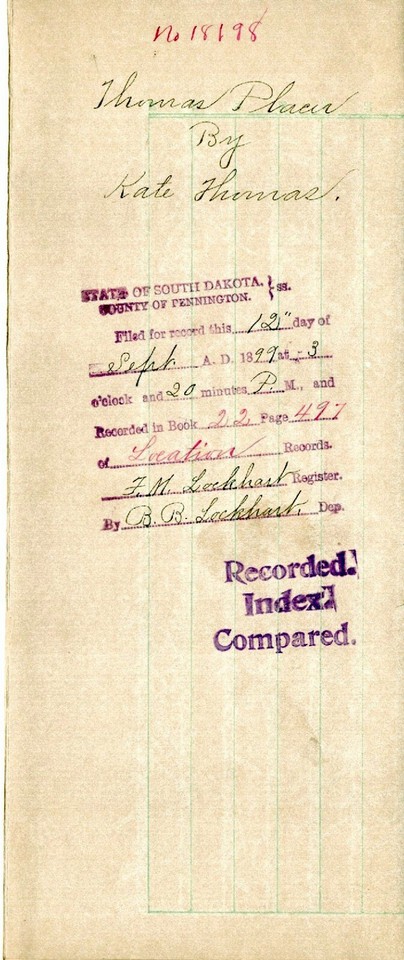 No 18198
Thomas Placer
By
Kate Thomas.
STATE OF SOUTH DAKOTA, } ss.
COUNTY OF PENNINGTON.
Filed for record this 12" day of
Sept. A. D. 1899 at 3
o'clock and 20 minutes P. M., and
Recorded in Book 22 Page 497
of Location Records.
F. M. Lockhart Register.
By B. B. Lockhart, Dep.
Recorded.
Index.
Compared.